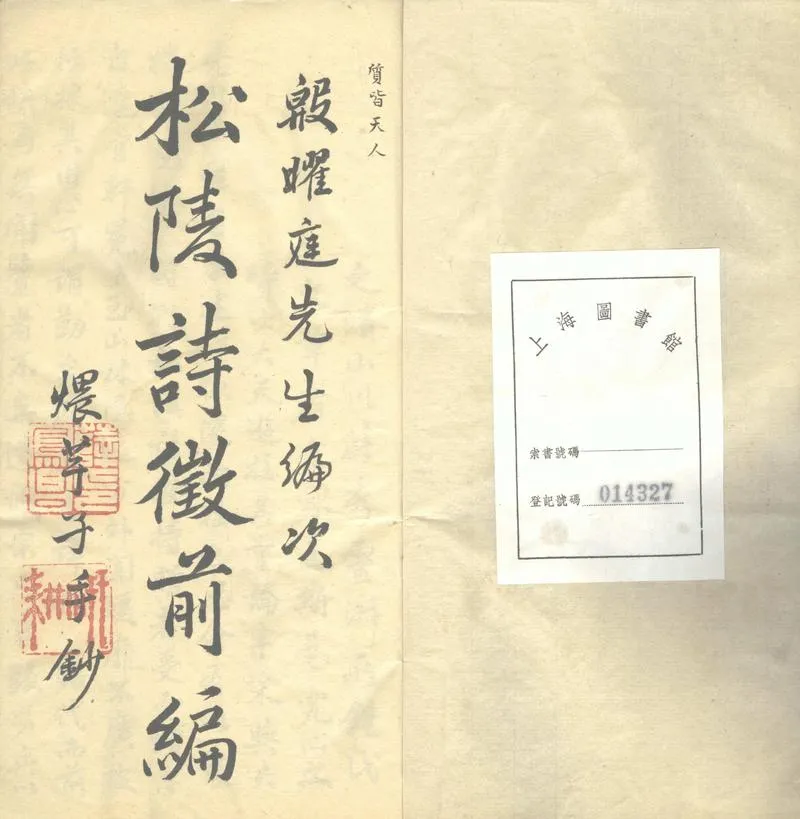 質皆天人
殷曜庭先生編次
松陵詩徵前編
煨芋子手鈔
上海圖書館
索書號碼
登記號碼 014327